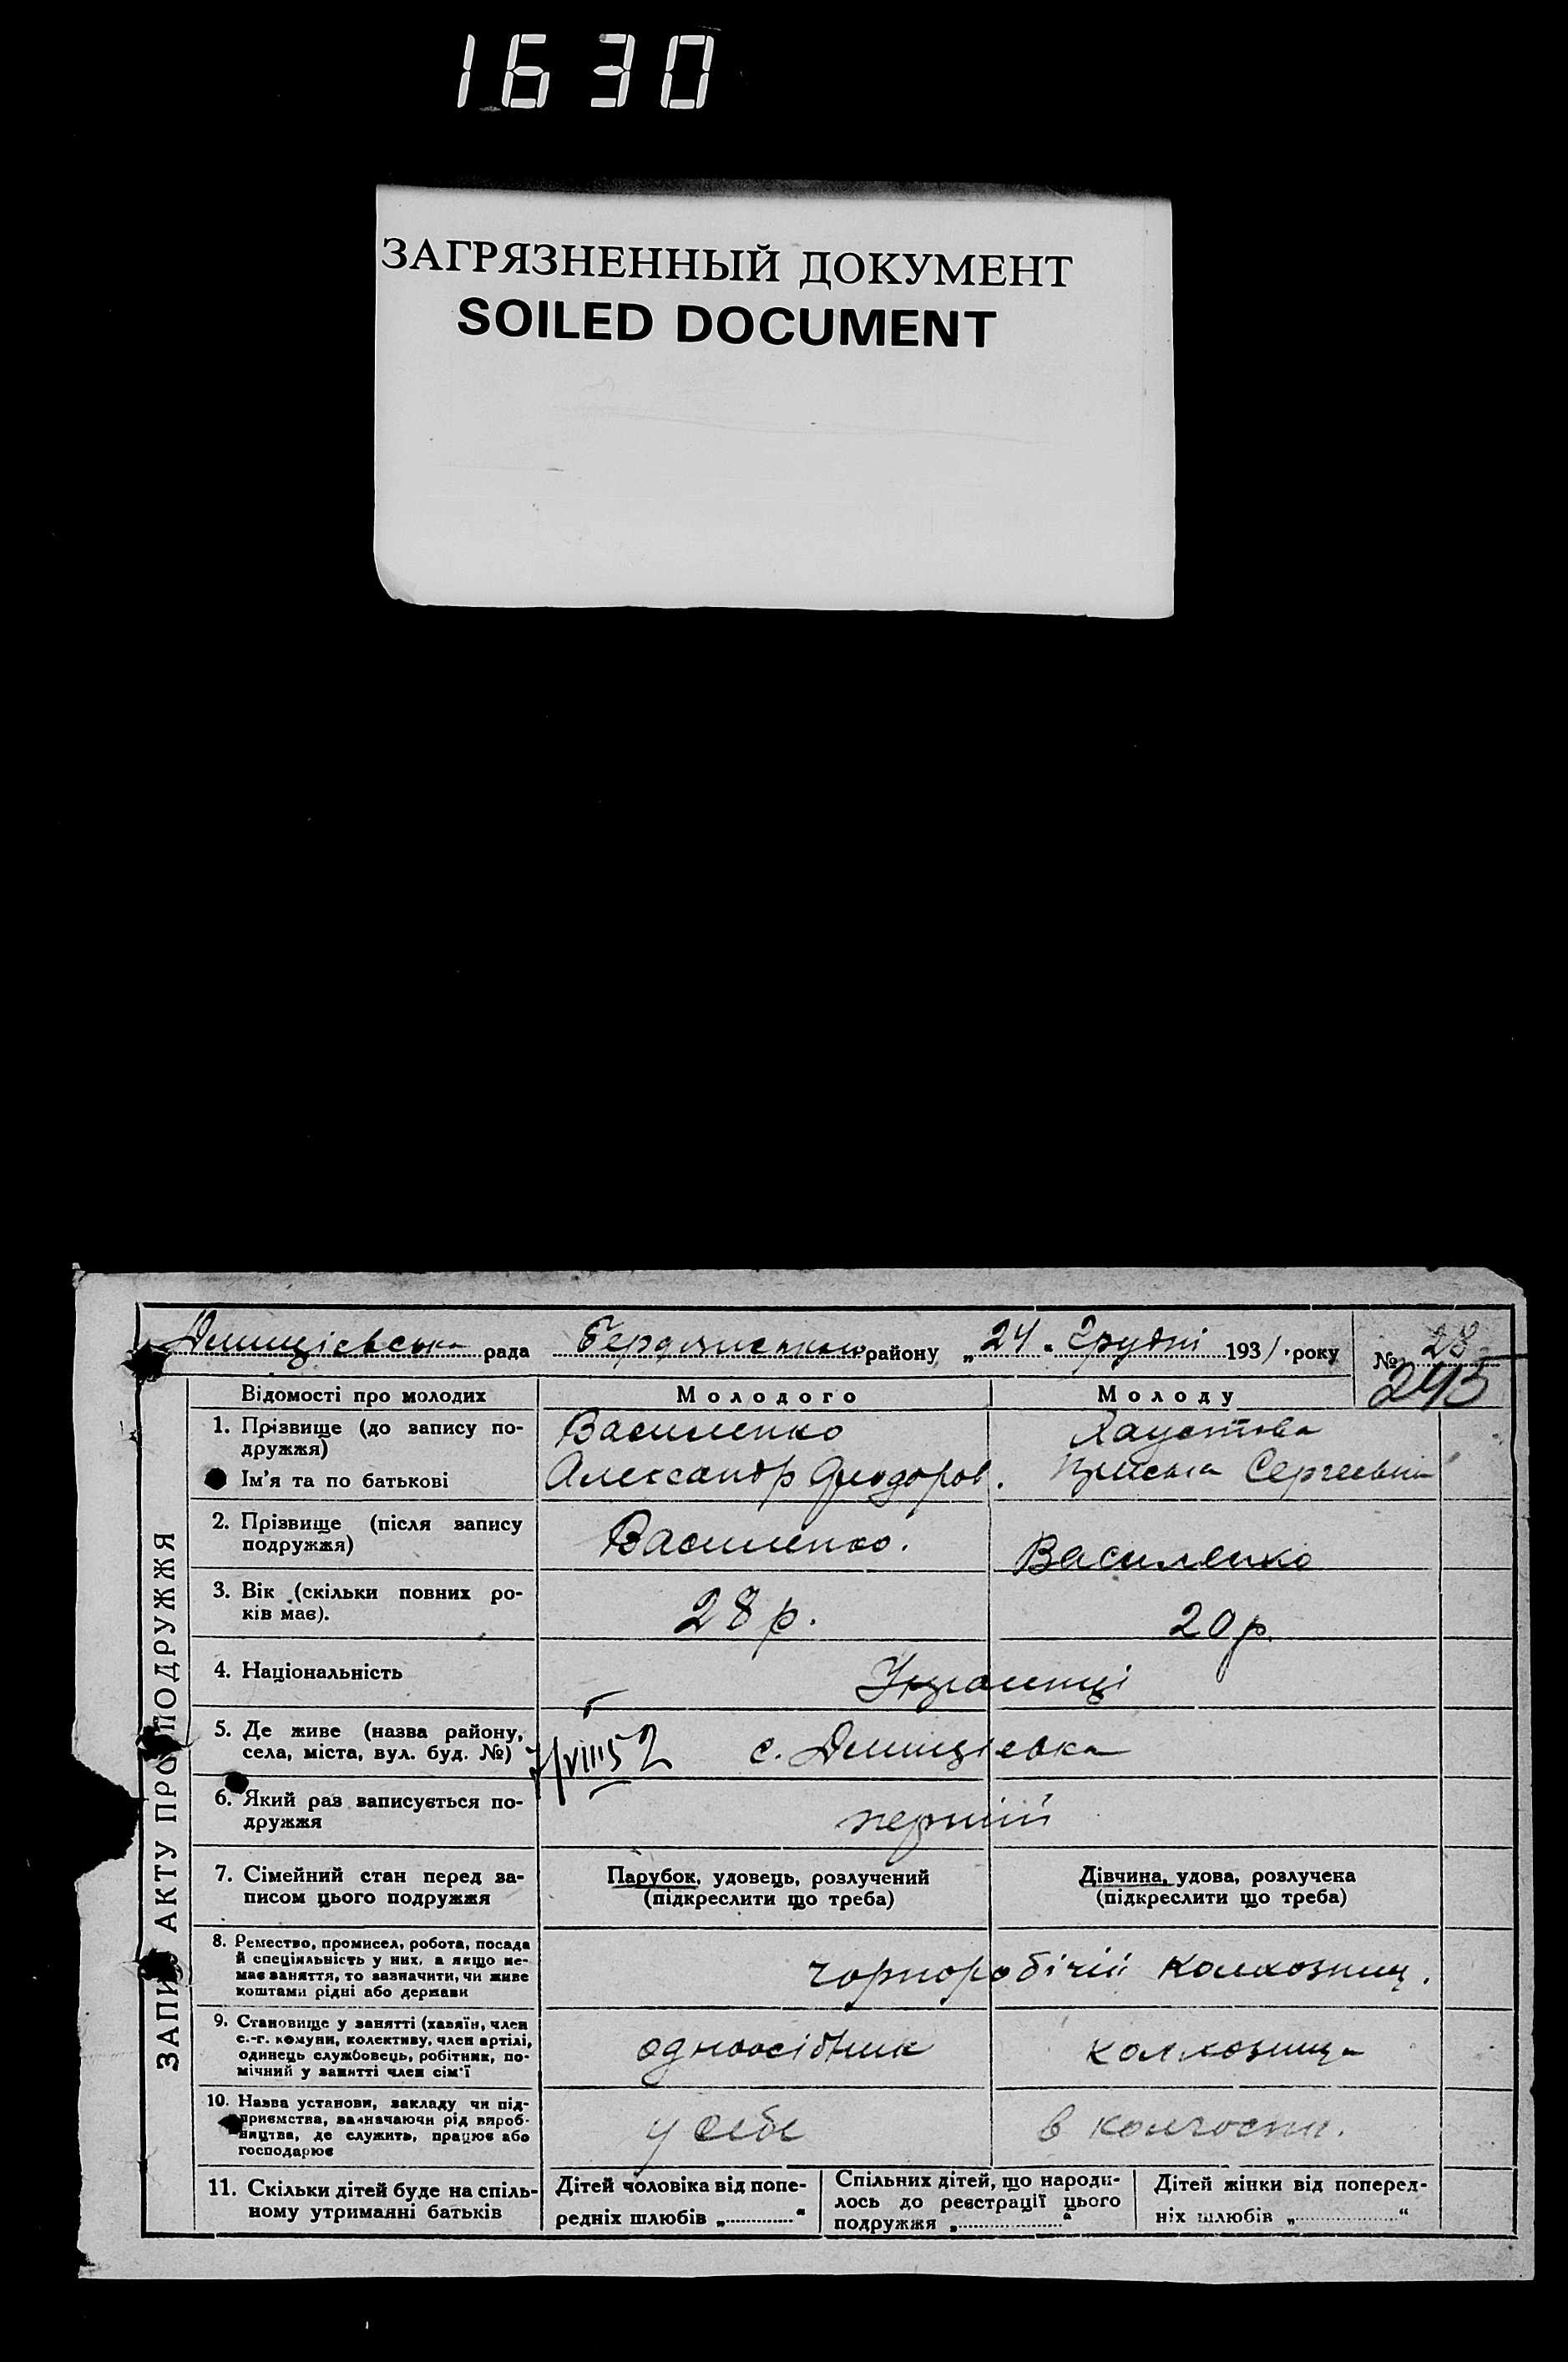 1630
ЗАГРЯЗНЕННЫЙ ДОКУМЕНТ
SOILED DOCUMENT
рада району „24“ Грудні 1931 року № 28
245
ЗАПИС АКТУ ПРО ПОДРУЖЖЯ
Відомості про молодих Молодого Молоду
1. Прізвище (до запису по-
дружжя) Василенко Хаустова
Ім'я та по батькові Александр Фиодоров. Сергеевна
2. Прізвище (після запису
подружжя) Василенко. Василенко
3. Вік (скільки повних ро-
ків має). 28 р. 20 р.
4. Національність Українці
5. Де живе (назва району,
села, міста, вул. буд. №) 7/VIII 52 с.
6. Який раз записується по-
дружжя перший
7. Сімейний стан перед за-
писом цього подружжя
Парубок, удовець, розлучений
(підкреслити що треба)
Дівчина, удова, розлучека
(підкреслити що треба)
8. Ремество, промисел, робота, посада
й спеціяльність у них, а якщо не-
має заняття, то зазначити, чи живе
коштами рідні або держави
чорноробічий колхозниц.
9. Становище у занятті (хазяїн, член
с.-г. комуни, колективу, член артілі,
одинець службовець, робітник, по-
мічний у занятті член сім'ї
одноосібник колхозница
10. Назва установи, закладу чи під-
приємства, зазначаючи рід вироб-
ництва, де служить, працює або
господарює
у себе в колгоспи.
11. Скільки дітей буде на спіль-
ному утриманні батьків
Дітей чоловіка від попе-
редніх шлюбів „ “
Спільних дітей, що народи-
лось до реєстрації цього
подружжя „ “
Дітей жінки від поперед-
ніх шлюбів „ “